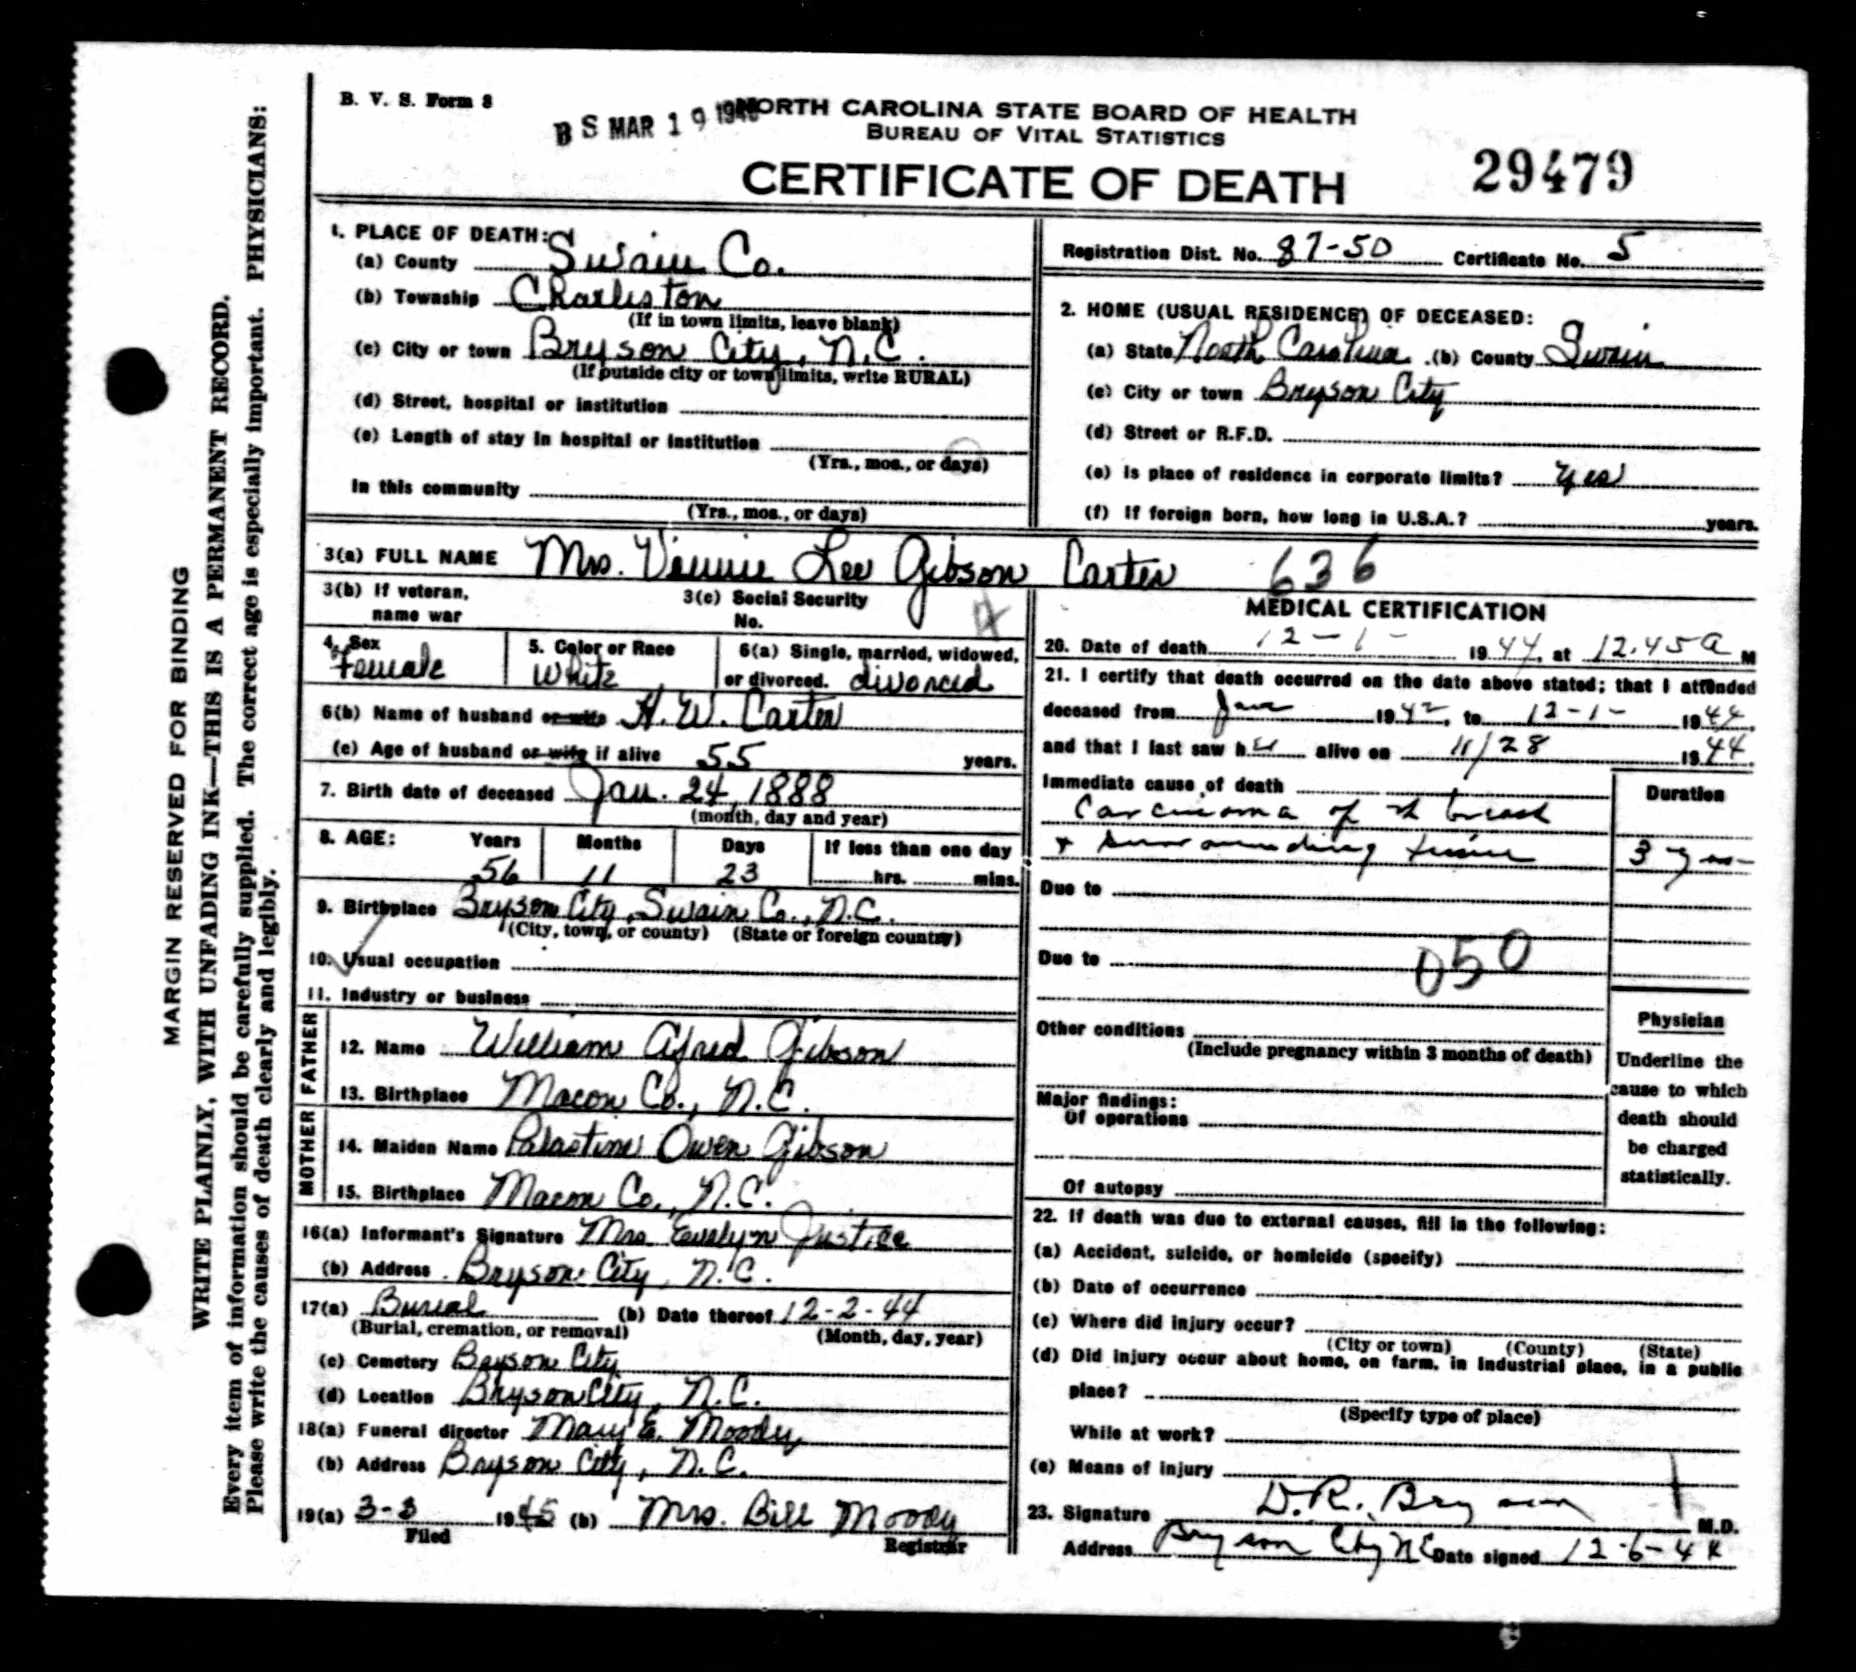 B. V. S. Form 8
BS MAR 19 194
NORTH CAROLINA STATE BOARD OF HEALTH
BUREAU OF VITAL STATISTICS
CERTIFICATE OF DEATH
29479
MARGIN RESERVED FOR BINDING
WRITE PLAINLY, WITH UNFADING INK—THIS IS A PERMANENT RECORD.
Every item of information should be carefully supplied. The correct age is especially important. PHYSICIANS:
Please write the causes of death clearly and legibly.
1. PLACE OF DEATH:
(a) County Swain Co.
(b) Township Charleston
(If in town limits, leave blank)
(c) City or town Bryson City, N.C.
(If outside city or town limits, write RURAL)
(d) Street, hospital or institution
(e) Length of stay in hospital or institution
(Yrs., mos., or days)
In this community
(Yrs., mos., or days)
Registration Dist. No. 87-50 Certificate No. 5
2. HOME (USUAL RESIDENCE) OF DECEASED:
(a) State North Carolina (b) County Swain
(c) City or town Bryson City
(d) Street or R.F.D.
(e) Is place of residence in corporate limits? yes
(f) If foreign born, how long in U.S.A.? years.
3(a) FULL NAME Mrs. Vinnie Lee Gibson Carter 636
3(b) If veteran, name war
3(c) Social Security No.
4. Sex Female
5. Color or Race White
6(a) Single, married, widowed, or divorced. divorced
6(b) Name of husband or wife H. W. Carter
(c) Age of husband or wife if alive 55 years.
7. Birth date of deceased Jan. 24, 1888
(month, day and year)
8. AGE: Years 56 Months 11 Days 23 If less than one day hrs. mins.
9. Birthplace Bryson City, Swain Co., N.C.
(City, town, or county) (State or foreign country)
10. Usual occupation
11. Industry or business
FATHER
12. Name William Alfred Gibson
13. Birthplace Macon Co., N.C.
MOTHER
14. Maiden Name Palastine Owen Gibson
15. Birthplace Macon Co., N.C.
16(a) Informant's Signature Mrs Evelyn Justice
(b) Address Bryson City, N.C.
17(a) Burial (b) Date thereof 12-2-44
(Burial, cremation, or removal) (Month, day, year)
(c) Cemetery Bryson City
(d) Location Bryson City, N.C.
18(a) Funeral director Mary E. Moody
(b) Address Bryson City, N.C.
19(a) 3-3 1945 (b) Mrs. Bill Moody
Filed Registrar
MEDICAL CERTIFICATION
20. Date of death 12-1- 1944, at 12.45 a M
21. I certify that death occurred on the date above stated; that I attended
deceased from Jan 1942, to 12-1- 1944,
and that I last saw her alive on 11/28 1944.
Immediate cause of death
Duration
Carcinoma of th breast
+ surrounding tissue 3 yrs
Due to
Due to
050
Other conditions
(Include pregnancy within 3 months of death)
Major findings:
Of operations
Of autopsy
Physician
Underline the
cause to which
death should
be charged
statistically.
22. If death was due to external causes, fill in the following:
(a) Accident, suicide, or homicide (specify)
(b) Date of occurrence
(c) Where did injury occur?
(City or town) (County) (State)
(d) Did injury occur about home, on farm, in industrial place, in a public
place?
(Specify type of place)
While at work?
(e) Means of injury
23. Signature D.R. Bryson M.D.
Address Bryson City NC Date signed 12-6-44